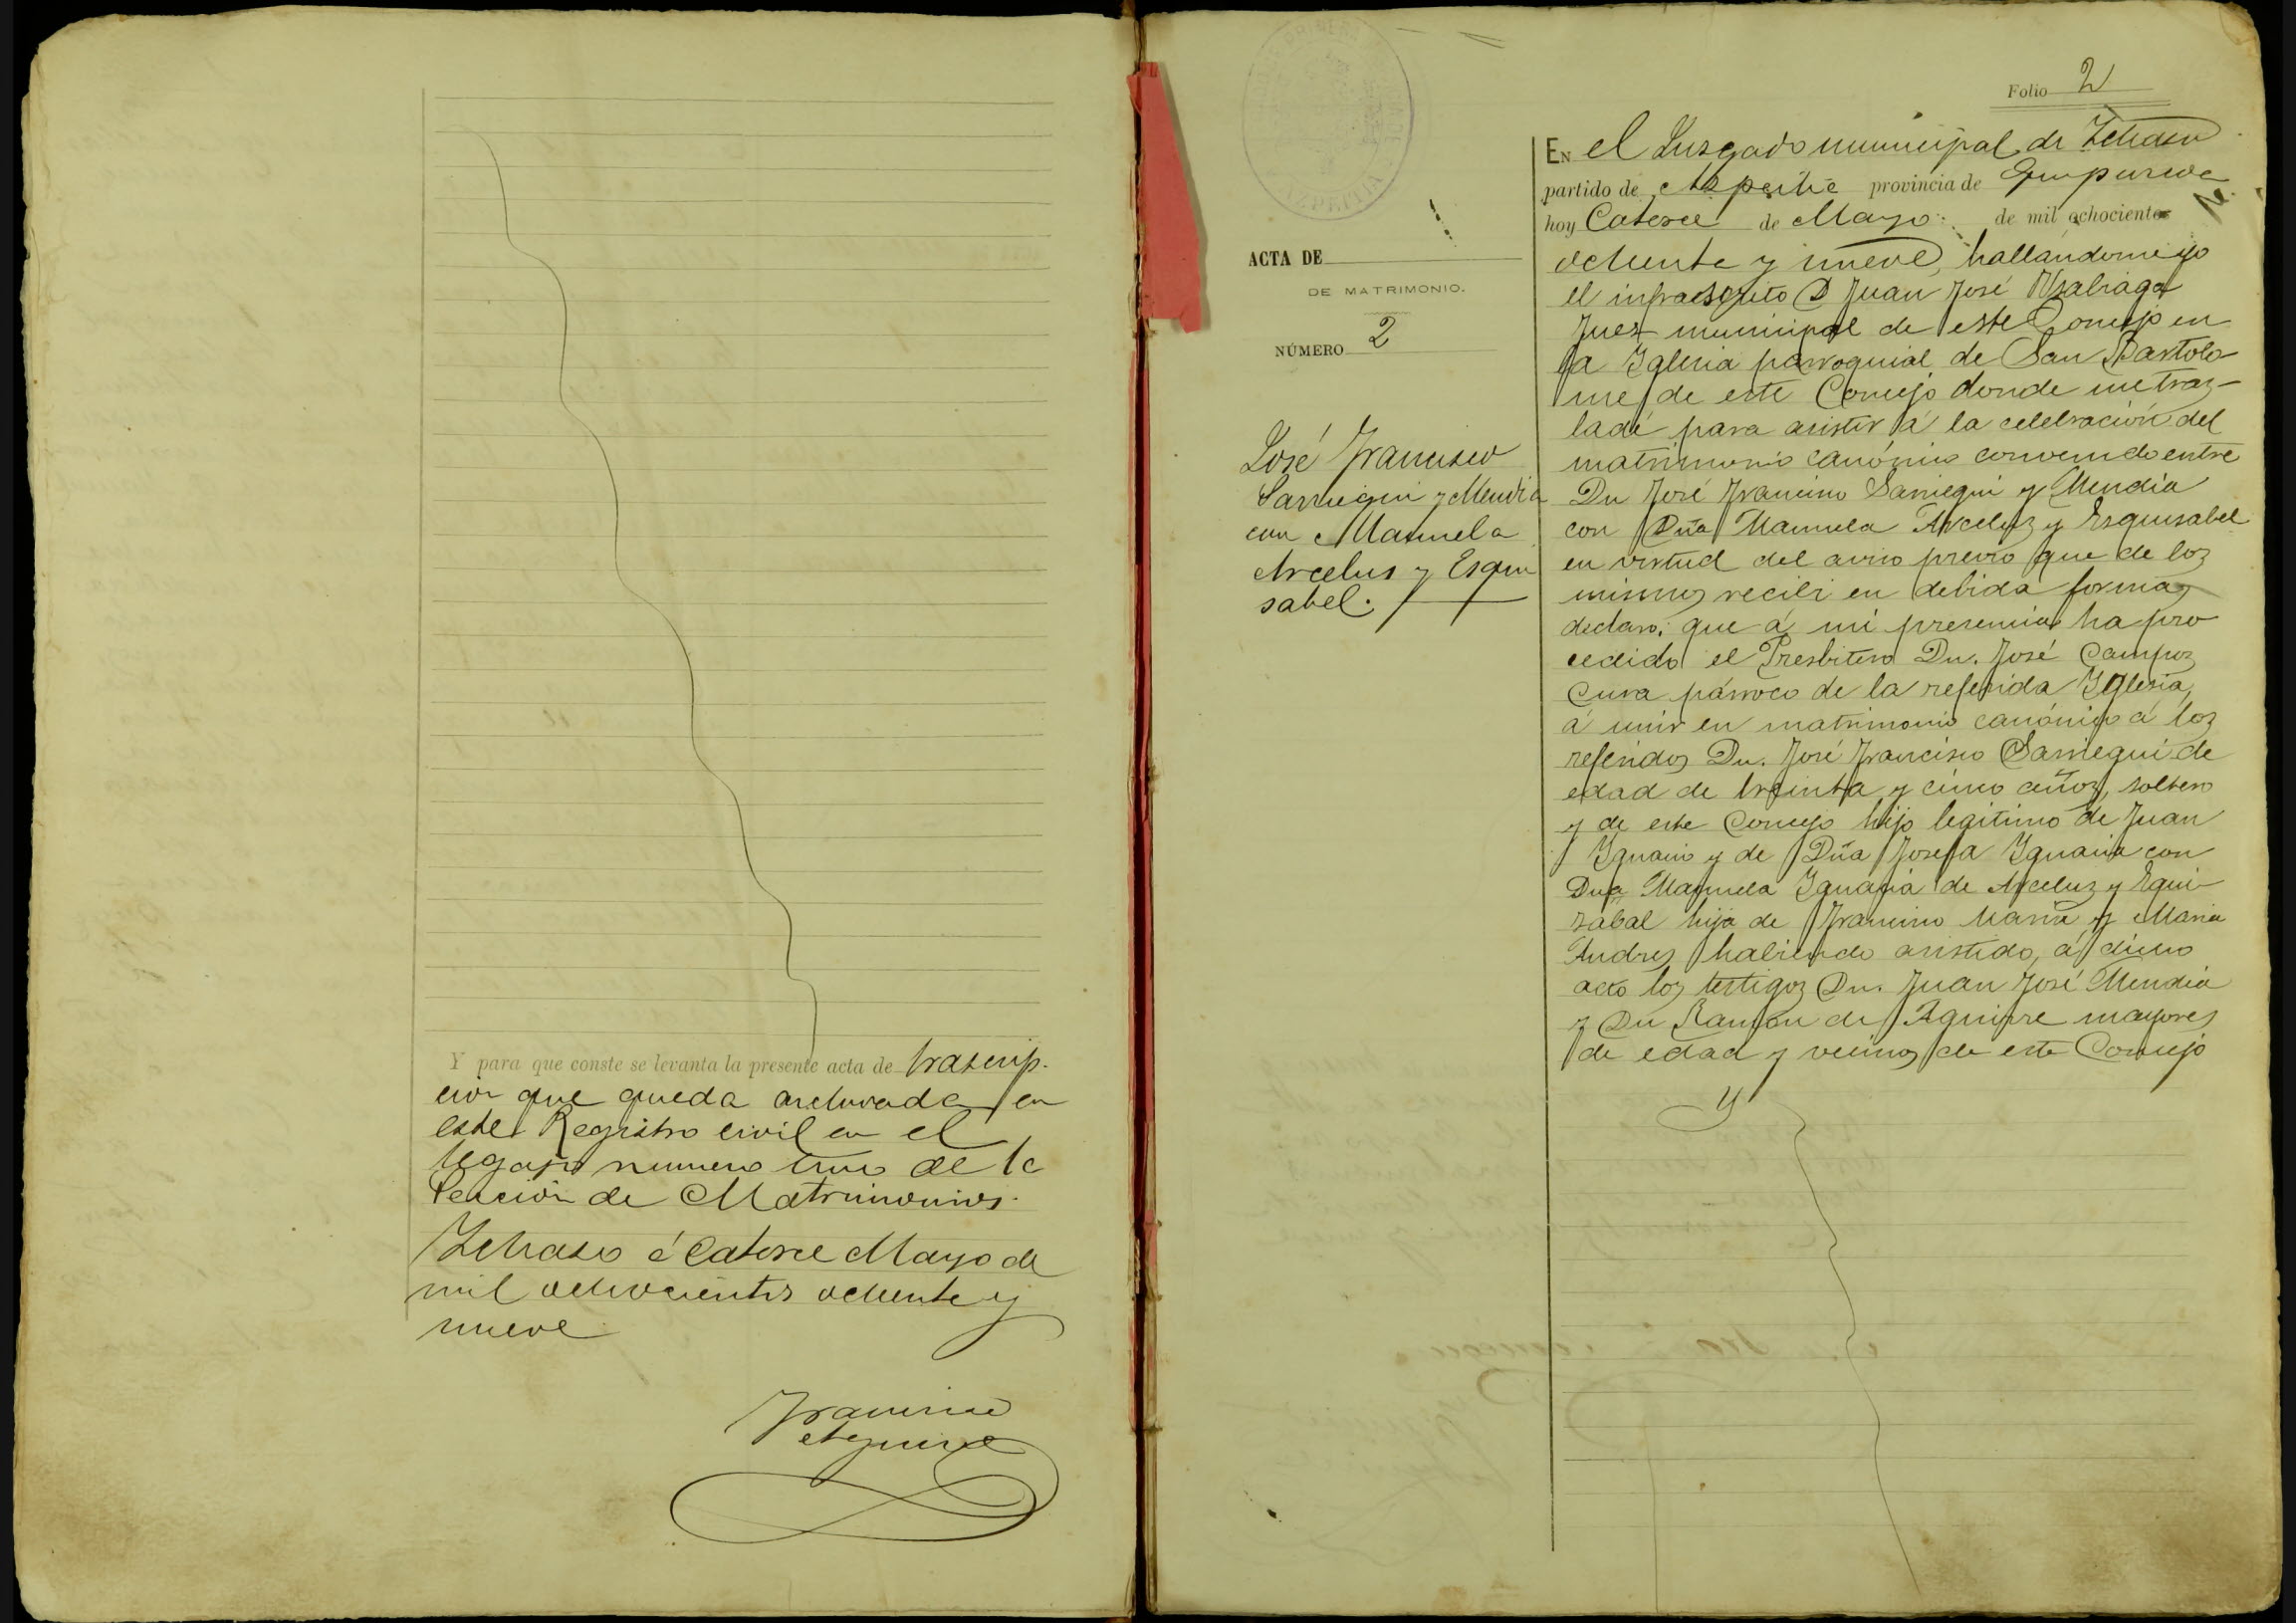 Y para que conste se levanta la presente acta de trascrip-
ción que queda archivada en
este Registro civil en el
legajo numero uno de la
Sección de Matrimonios.
Ichaso á Catorce Mayo de
mil ochocientos ochenta y
nueve
Francisco
Aguirre
Folio 2
ACTA DE
DE MATRIMONIO.
NÚMERO 2
José Francisco
Sarriegui y Mendia
con Manuela
Arcelus y Esqui
sabel.
EN el Juzgado municipal de Ichaso
partido de Azpeitia provincia de Guipuzcoa
hoy Catorce de Mayo de mil ochocientos
ochenta y nueve, hallandome yo
el infraescrito D Juan José
Juez municipal de este Concejo en
la Iglesia parroquial de San Bartolo-
me de este Concejo donde me tras-
ladé para asistir á la celebración del
matrimonio canónico convenido entre
Dn José Francisco Sarriegui y Mendia
con Dña Manuela Arceluz y Esquisabel
en virtud del aviso previo que de los
mismos recibi en debida forma
declaro: que á mi presencia ha pro
cedido el Presbitero Dn. José Campos
Cura párroco de la referida Yglesia,
á unir en matrimonio canónico á los
referidos Dn. José Francisco Sarriegui de
edad de treinta y cinco años, soltero
y de este Concejo hijo legitimo de Juan
Ygnacio y de Dña Josefa Ygnacia con
Dña Manuela Ygnacia de Arceluz y Equi-
zabal hija de Francisco Maria y Maria
Andres habiendo asistido, á dicho
acto los testigos Dn. Juan José Mendia
y Dn Ramon de Aguirre mayores
de edad y vecinos de este Concejo
y